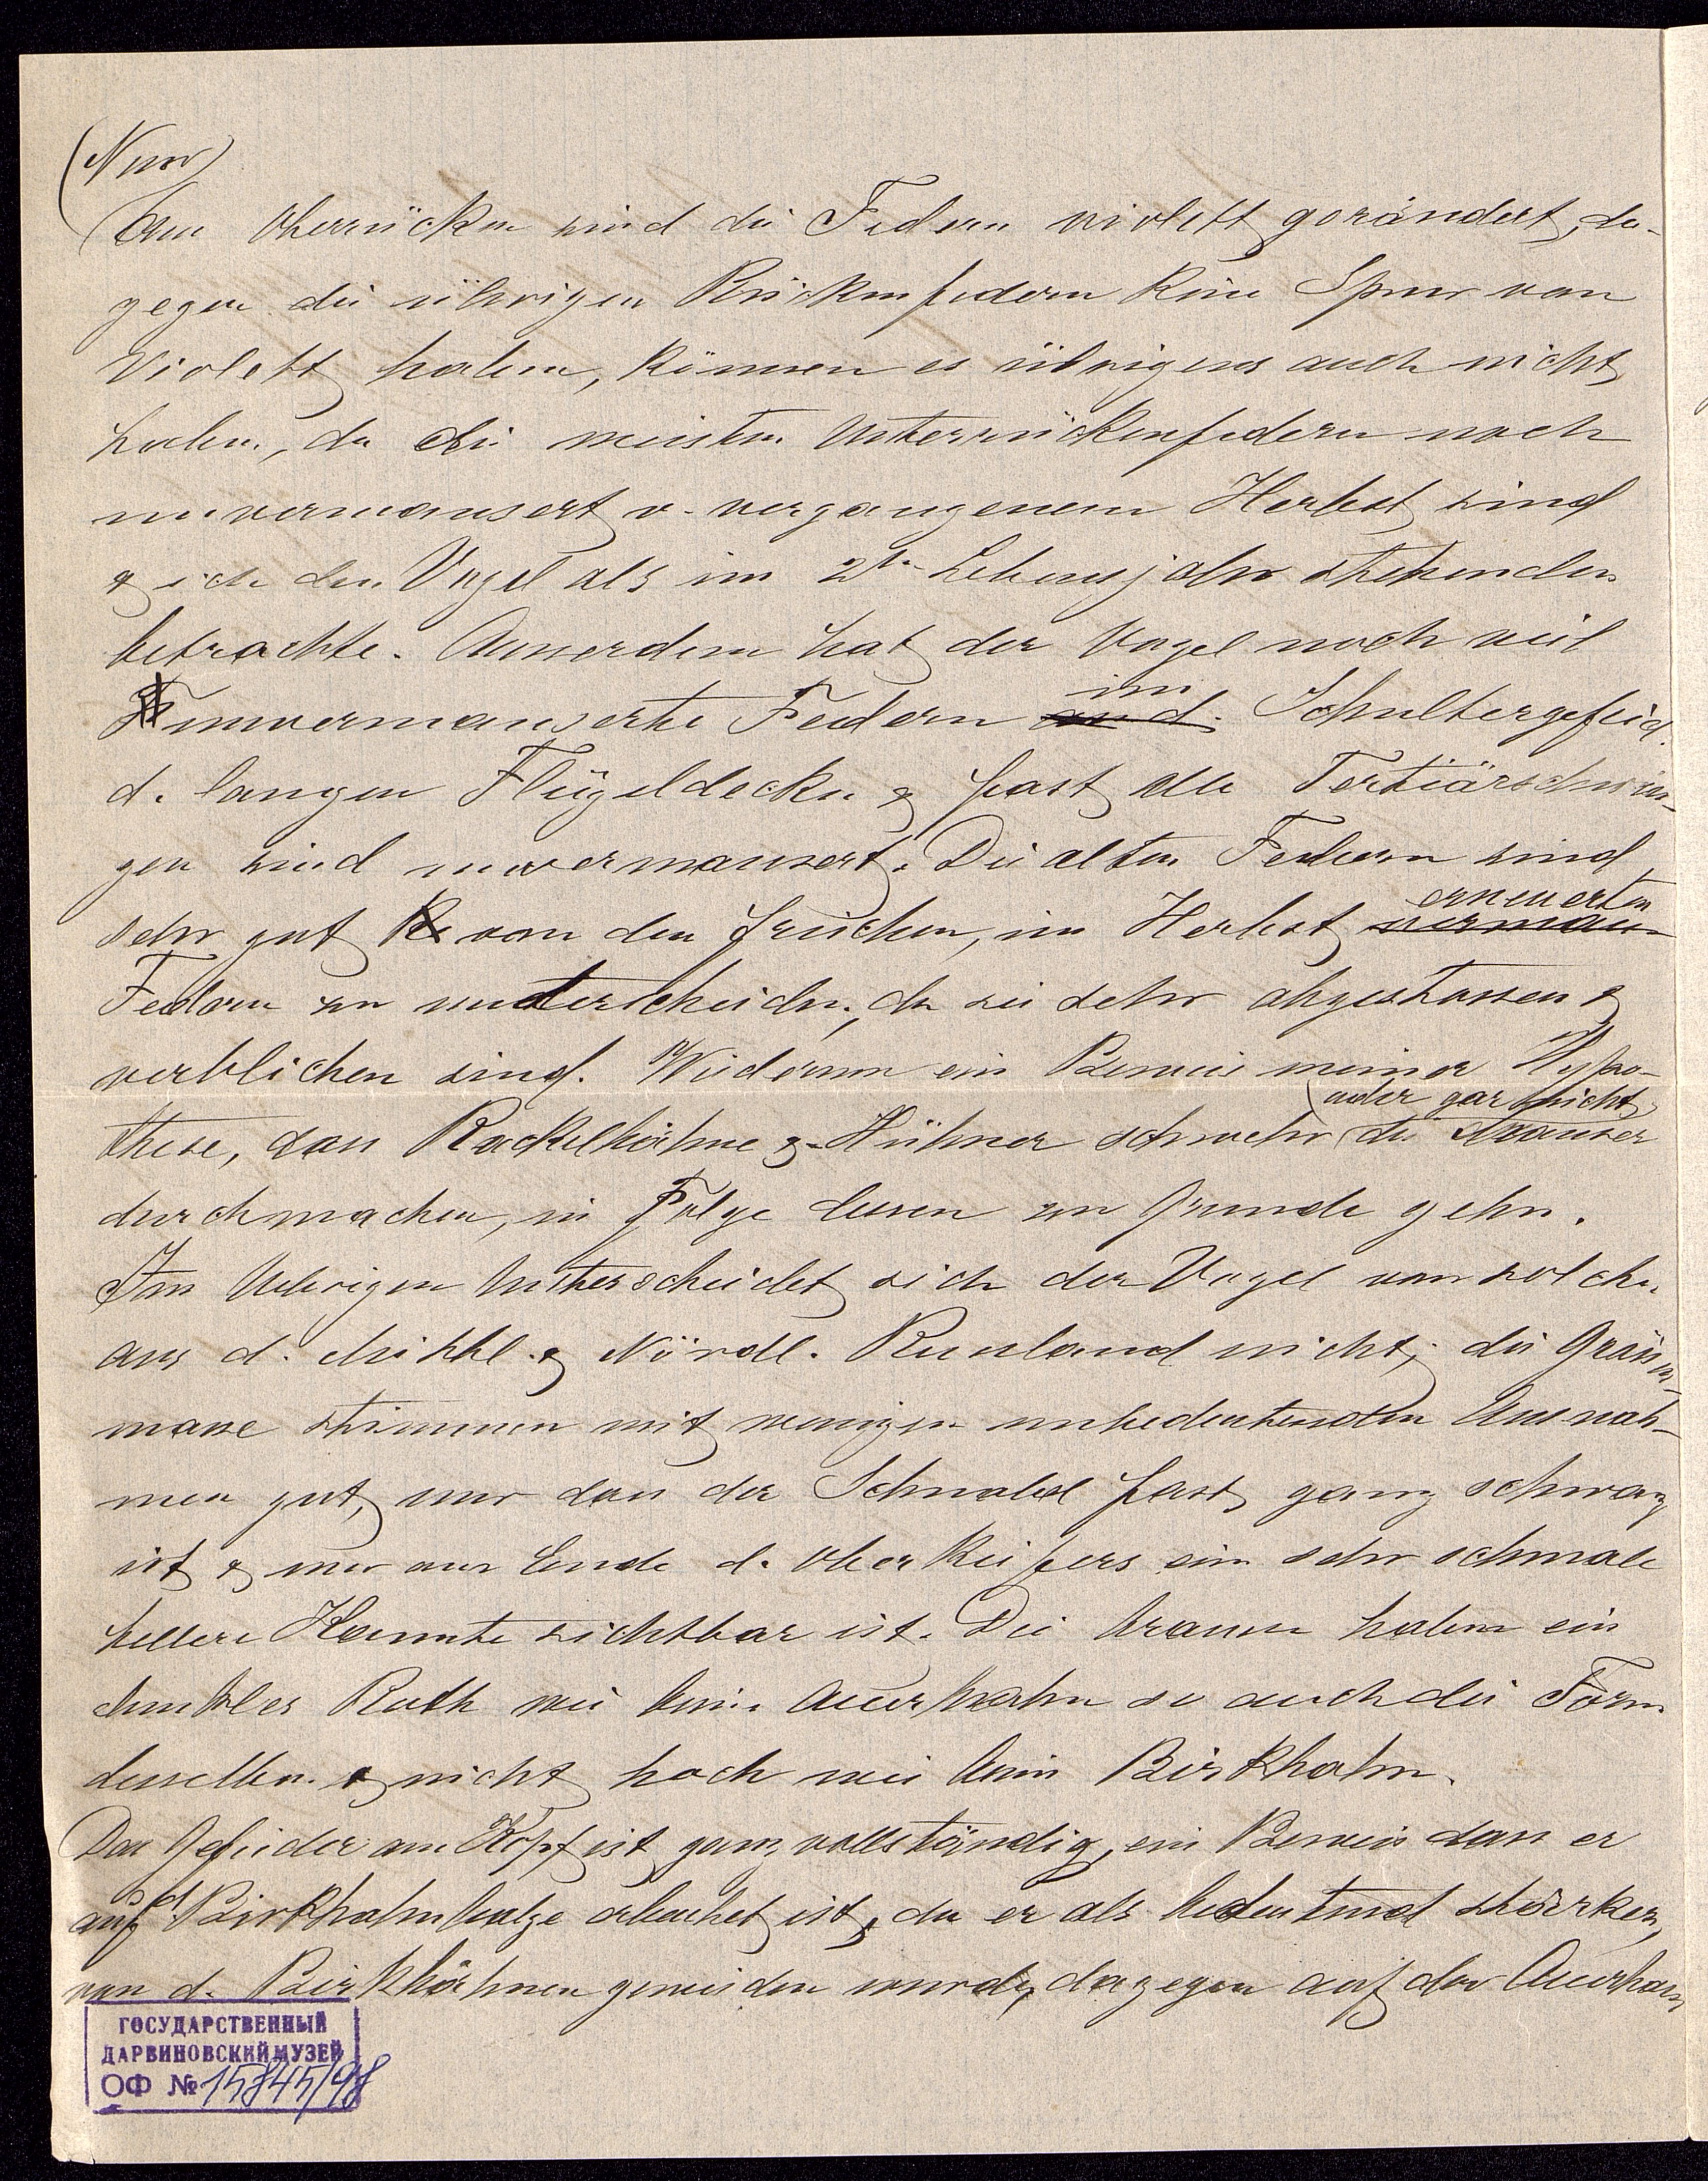 (Nur)
(Am Oberrücken sind die Federn violett gerändert, da-
gegen die übrigen Rückenfedern keine Spur von
Violett haben, können es übrigens auch nicht
haben, da die meisten Unterrückenfedern noch
unvermausert v. vergangenem Herbst sind
& ich den Vogel als im 2ten Lebensjahr stehenden
betrachte. Ausserdem hat der Vogel noch viel
unvermauserte Federn im Schultergefied.
d. langen Flügeldecken & fast alle Tertiärschwin-
gen sind unvermausert. Die alten Federn sind
sehr gut von den frischen, im Herbst erneuerten
Federn zu unterscheiden, da sie sehr abgestossen &
verblichen sind. Wiederum ein Beweis meiner Hypo-
these, dass Rackelhähne & -Hühner schwehr (oder gar nicht) die Mauser
durchmachen, in Folge dessen zu Grunde gehn.
Im Uebrigen unterscheidet sich der Vogel von solchen
aus d. Mittl. & Nördl. Russland nicht; die Grössen-
masse stimmen mit wenigen unbedeutenden Ausnah-
men gut, nur dass der Schnabel fast ganz schwarz
ist & nur am Ende d. Oberkiefers ein sehr schmale
hellere Kannte sichtbar ist. Die Brauen haben ein
dunkles Roth wie beim Auerhahn so auch die Form
derselben & nicht hoch wie beim Birkhahn.
Das Gefieder am Kopf ist ganz vollständig, ein Beweis dass er
auf d. Birkhahnbalze erbeutet ist, da er als bedeutend stärker,
von d. Birkhähnen gemieden wurde, dagegen auf der Auerhahn
ГОСУДАРСТВЕННЫЙ
ДАРВИНОВСКИЙ МУЗЕЙ
ОФ № 15845/98